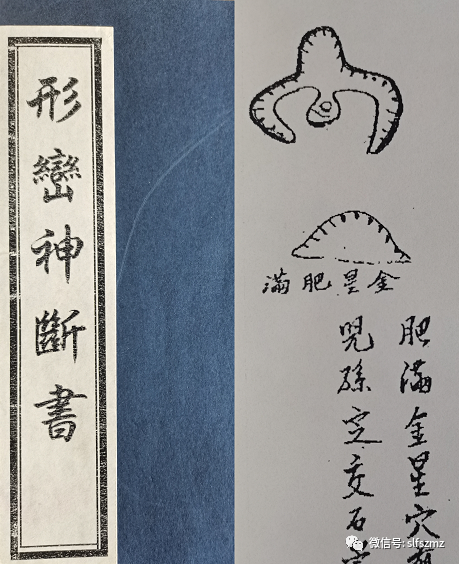 形巒神斷書
金星肥滿
肥滿金星穴
兒孫定交石
微信号: slfszmz